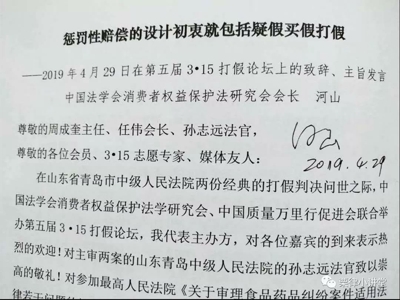 惩罚性赔偿的设计初衷就包括疑假买假打假
——2019年4月29日在第五届3·15打假论坛上的致辞、主旨发言
中国法学会消费者权益保护法研究会会长 河山
尊敬的周成奎主任、任伟会长、孙志远法官，
尊敬的各位会员、3·15志愿专家、媒体友人：
河山
2019.4.29
在山东省青岛市中级人民法院两份经典的打假判决问世之际，中
国法学会消费者权益保护法学研究会、中国质量万里行促进会联合举
办第五届3·15打假论坛，我代表主办方，对各位嘉宾的到来表示热
烈的欢迎！对主审两案的山东青岛中级人民法院的孙志远法官致以崇
高的敬礼！对参加最高人民法院《关于审理食品药品纠纷案件适用法
律若干问题的